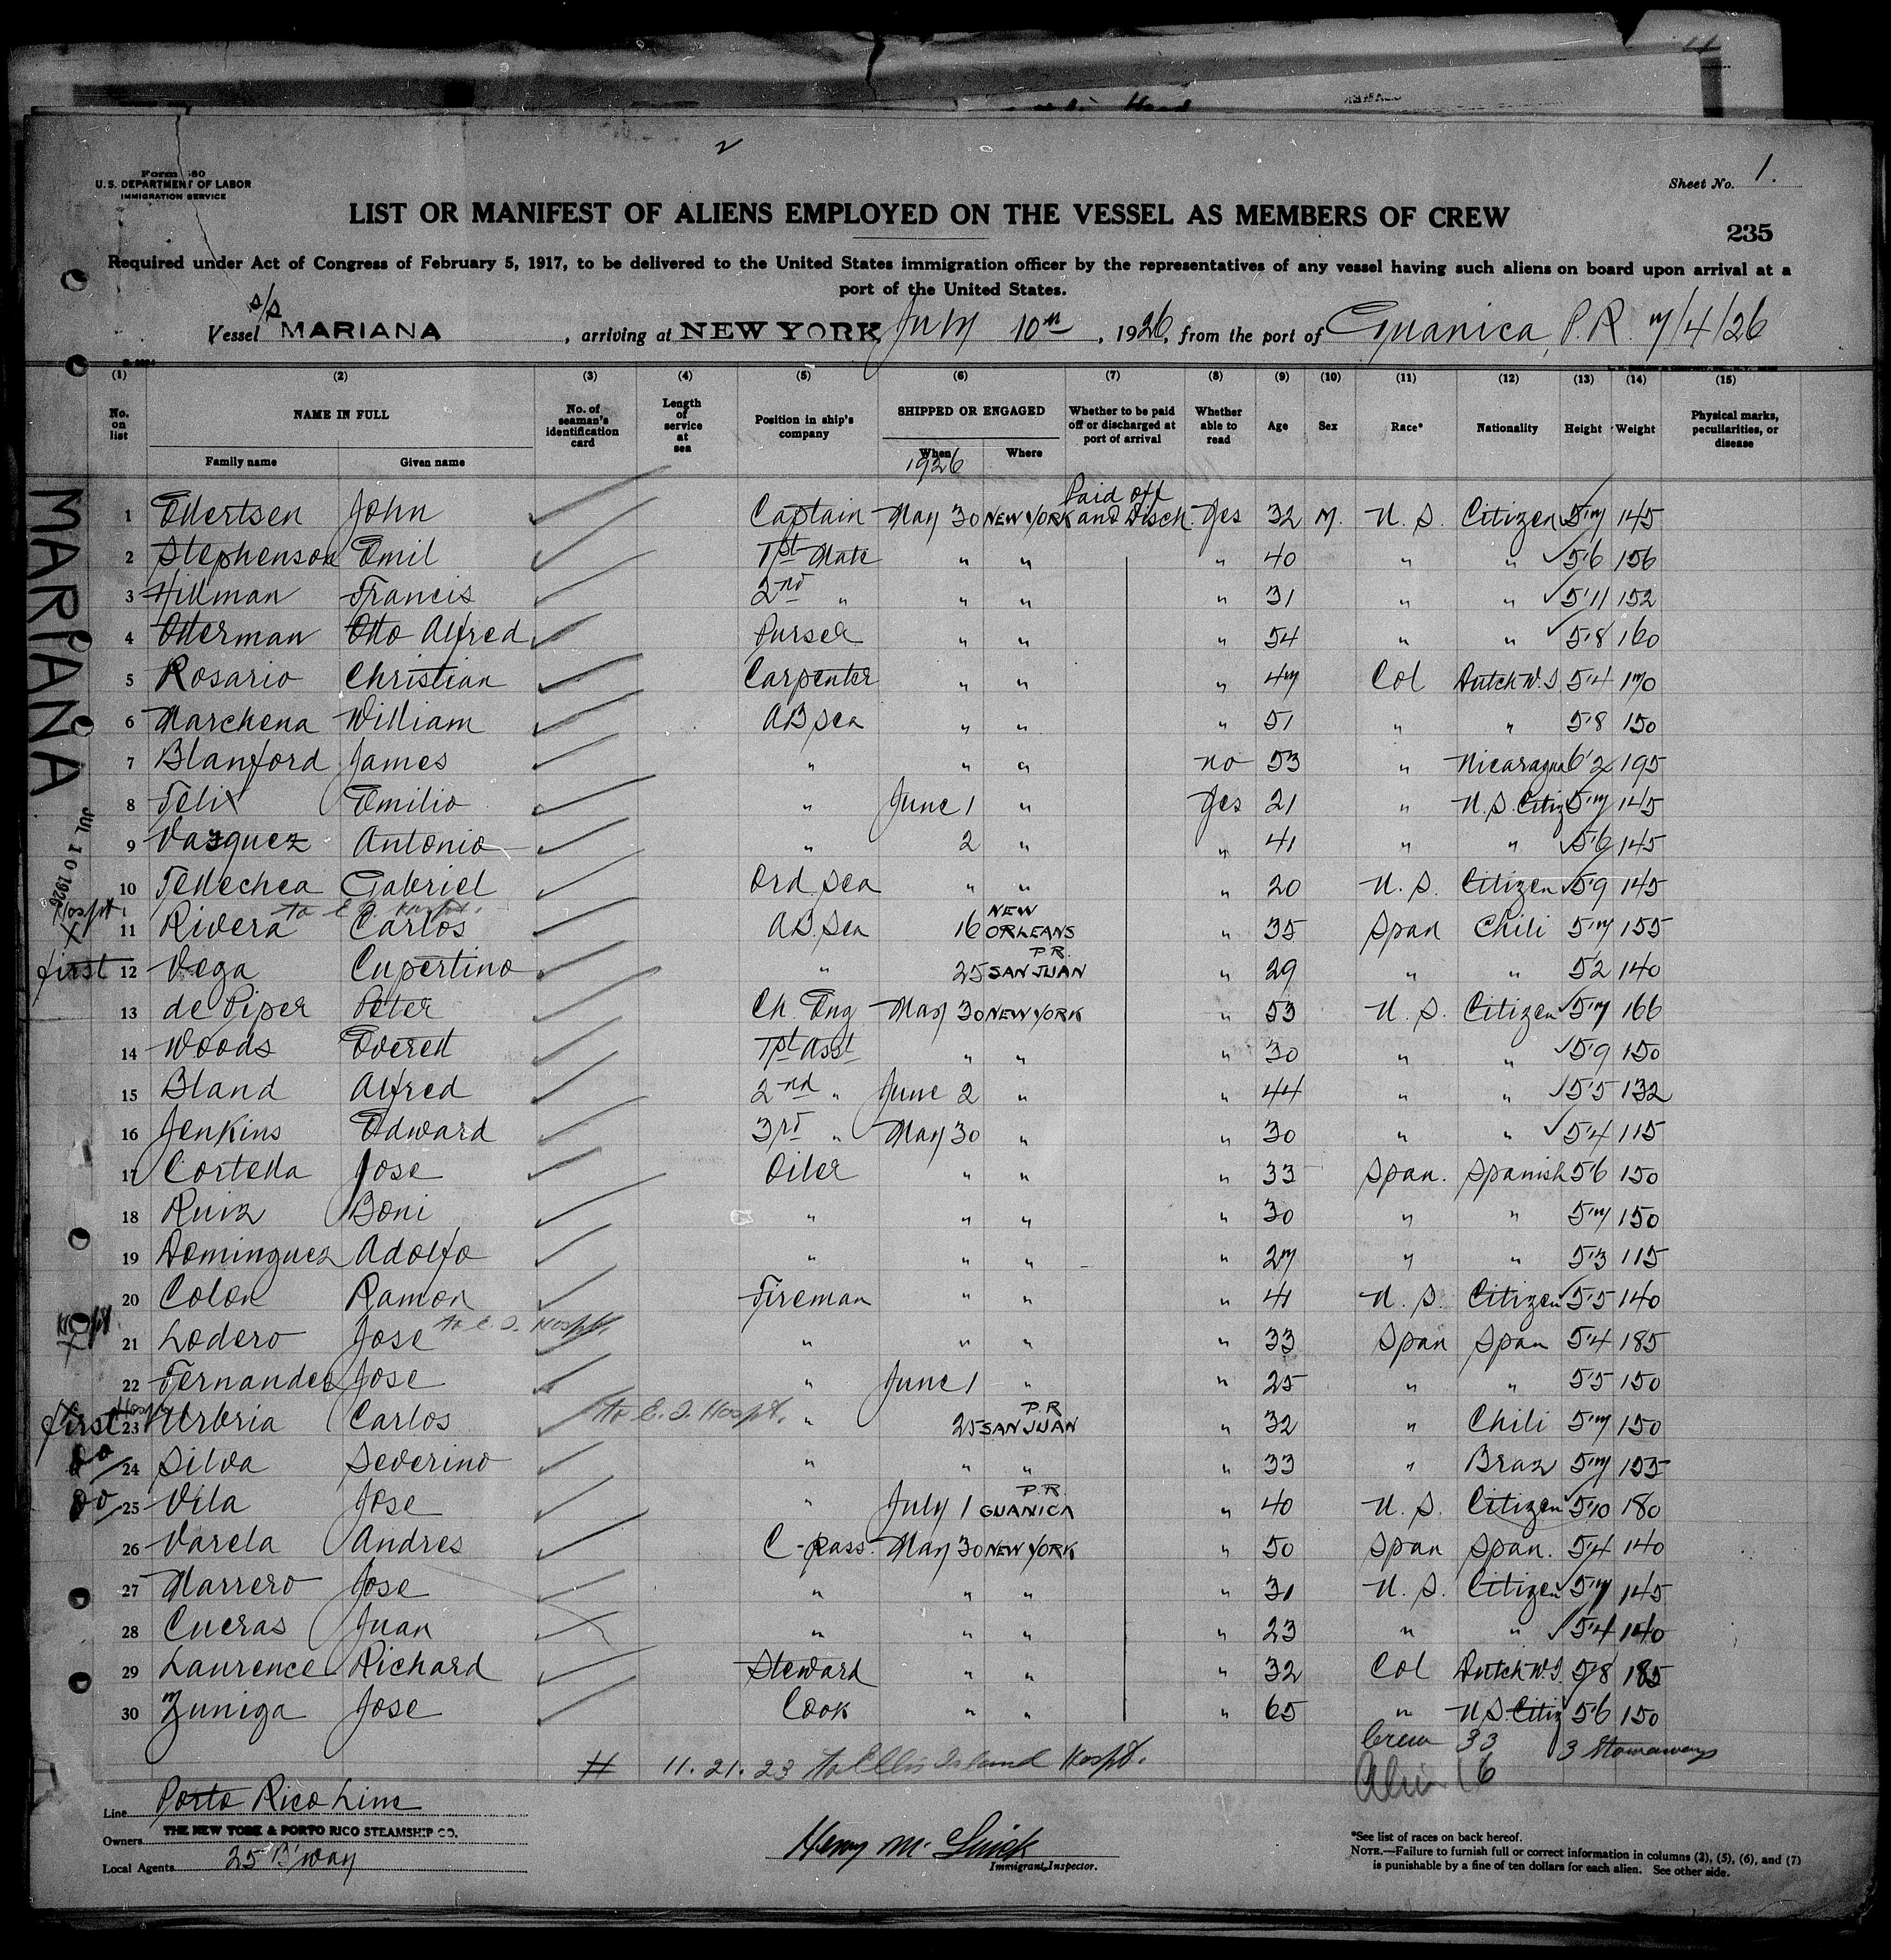 Form 680
U.S. DEPARTMENT OF LABOR
IMMIGRATION SERVICE
Sheet No. 1.
LIST OR MANIFEST OF ALIENS EMPLOYED ON THE VESSEL AS MEMBERS OF CREW
235
Required under Act of Congress of February 5, 1917, to be delivered to the United States immigration officer by the representatives of any vessel having such aliens on board upon arrival at a
port of the United States.
Vessel s/s MARIANA, arriving at NEW YORK July 10th, 1926, from the port of Guanica, P.R. 7/4/26
(1) (2) (3) (4) (5) (6) (7) (8) (9) (10) (11) (12) (13) (14) (15)
No. on list NAME IN FULL Family name Given name No. of seaman's identification card Length of service at sea Position in ship's company SHIPPED OR ENGAGED When 1926 Where Whether to be paid off or discharged at port of arrival Whether able to read Age Sex Race* Nationality Height Weight Physical marks, peculiarities, or disease
MARIANA
JUL 10 1926
1 Ellertsen John Captain May 30 NEW YORK Paid off and Disch. Yes 32 M. U. S. Citizen 5'7 145
2 Stephenson Emil 1st Mate " " " 40 " " 5'6 156
3 Hillman Francis 2nd " " " " 31 " " 5'11 152
4 Otterman Otto Alfred Purser " " " 54 " " 5'8 160
5 Rosario Christian Carpenter " " " 47 Col Dutch W.I 5'4 170
6 Marchena William AB Sea " " " 51 " " 5'8 150
7 Blanford James " " " no 53 " Nicaragua 6'2 195
8 Felix Emilio " June 1 " Yes 21 " U.S. Citiz 5'7 145
9 Vazquez Antonio " 2 " " 41 " " 5'6 145
10 Tellechea Gabriel Ord Sea " " " 20 U. S. Citizen 5'9 145
Hospt. X 11 Rivera Carlos to E.I. Hospt. AB Sea 16 NEW ORLEANS " 35 Span Chili 5'7 155
first 12 Vega Cupertino " 25 SAN JUAN P.R. " 29 " " 5'2 140
13 de Piper Peter Ch. Eng May 30 NEW YORK " 53 U. S. Citizen 5'7 166
14 Woods Everett 1st Asst " " " 30 " " 5'9 150
15 Bland Alfred 2nd " June 2 " " 44 " " 5'5 132
16 Jenkins Edward 3rd " May 30 " " 30 " " 5'4 115
17 Cortella Jose Oiler " " " 33 Span. Spanish 5'6 150
18 Ruiz Boni " " " " 30 " " 5'7 150
19 Dominguez Adolfo " " " " 27 " " 5'3 115
20 Colon Ramon Fireman " " " 41 U. S. Citizen 5'5 140
Hospt X 21 Lodero Jose to E. I. Hospt. " " " " 33 Span Span 5'4 185
22 Fernandez Jose " June 1 " " 25 " " 5'5 150
first Hospt 23 Urbria Carlos to E. I. Hospt. " 25 SAN JUAN P.R " 32 " Chili 5'7 150
do 24 Silva Severino " " " " 33 " Braz 5'7 155
do 25 Vila Jose " July 1 GUANICA P.R. " 40 U. S. Citizen 5'10 180
26 Varela Andres C-pass. May 30 NEW YORK " 50 Span Span. 5'4 140
27 Marrero Jose " " " " 31 U. S. Citizen 5'7 145
28 Cueras Juan " " " " 23 " " 5'4 140
29 Laurence Richard Steward " " " 32 Col Dutch W.I. 5'8 185
30 Zuniga Jose Cook " " " 65 " U.S. Citiz 5'6 150
Crew 33 3 Stowaways
# 11. 21. 23 to Ellis Island Hospt.
Alien 16
Line Porto Rico Line
Owners THE NEW YORK & PORTO RICO STEAMSHIP CO.
Local Agents 25 B'way
Henry M.
Immigrant Inspector.
*See list of races on back hereof.
NOTE.—Failure to furnish full or correct information in columns (2), (5), (6), and (7)
is punishable by a fine of ten dollars for each alien. See other side.